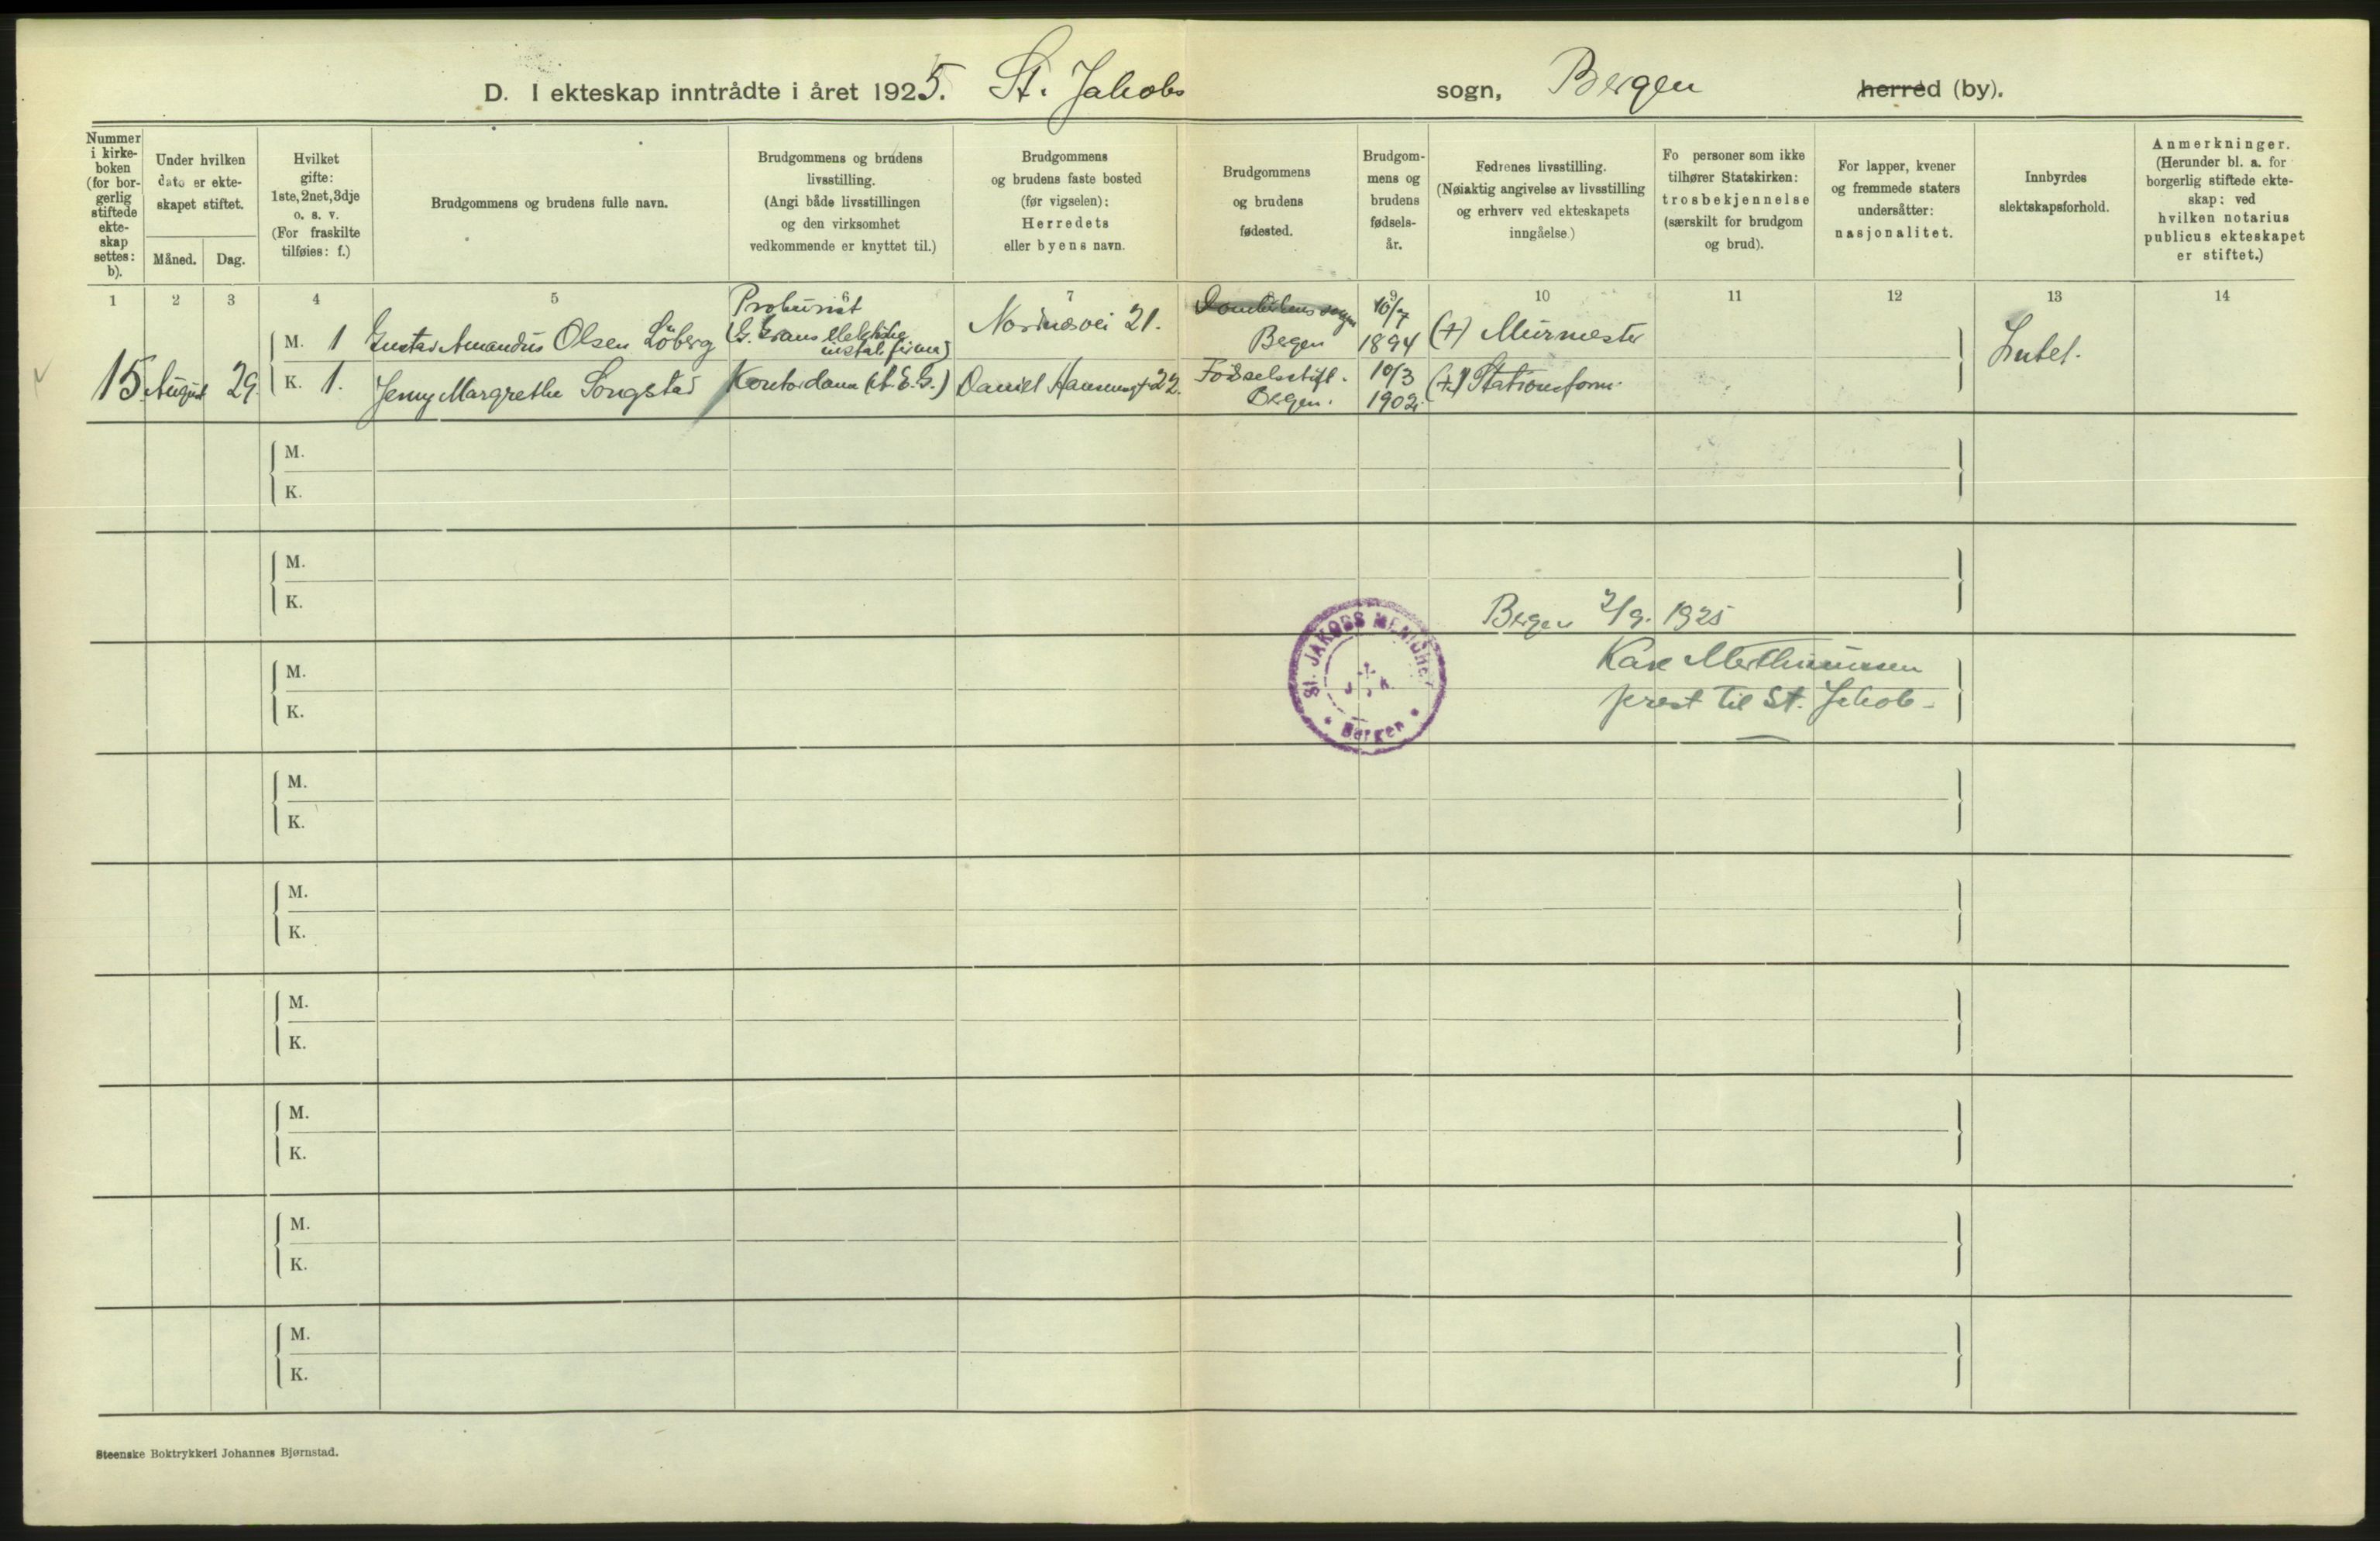 D. I ekteskap inntrådte i året 1925. St. Jakobs sogn, Bergen herred (by).
Nummer i kirke- boken (for bor- gerlig stiftede ekte- skap settes: b).
Under hvilken dato er ekte- skapet stiftet.
Måned. Dag.
Hvilket gifte: 1ste, 2net, 3dje o. s. v. (For fraskilte tilføies: f.)
Brudgommens og brudens fulle navn.
Brudgommens og brudens livsstilling. (Angi både livsstillingen og den virksomhet vedkommende er knyttet til.)
Brudgommens og brudens faste bosted (før vigselen): Herredets eller byens navn.
Brudgommens og brudens fødested.
Brudgom- mens og brudens fødsels- år.
Fedrenes livsstilling. (Nøiaktig angivelse av livsstilling og erhverv ved ekteskapets inngåelse.)
Fo personer som ikke tilhører Statskirken: trosbekjennelse (særskilt for brudgom og brud).
For lapper, kvener og fremmede staters undersåtter: nasjonalitet.
Innbyrdes slektskapsforhold.
Anmerkninger. (Herunder bl. a. for borgerlig stiftede ekte- skap: ved hvilken notarius publicus ekteskapet er stiftet.)
1 2 3 4 5 6 7 9 10 11 12 13 14
15 August 29.
M. 1 Gustav Amandus Olsen Löberg
Prokurist
(G. elektriske
install. firma)
Nordnæsvei 21.
Bergen
10/7
1894
(+) Murmester
Intet.
K. 1. Jenny Margrethe Songstad
Kontordame (A.E.G.)
Daniel Hansensgt 22.
Fødselsstift.
Bergen.
10/3
1902.
(+) Stationsform.
M.
K.
M.
K.
Bergen 2/9. 1925
M.
K.
prest til St. Jakob
St. JAKOBS MENIGHET
Bergen
M.
K.
M.
K.
M.
K.
M.
K.
M.
K.
M.
K.
Steenske Boktrykkeri Johannes Bjørnstad.